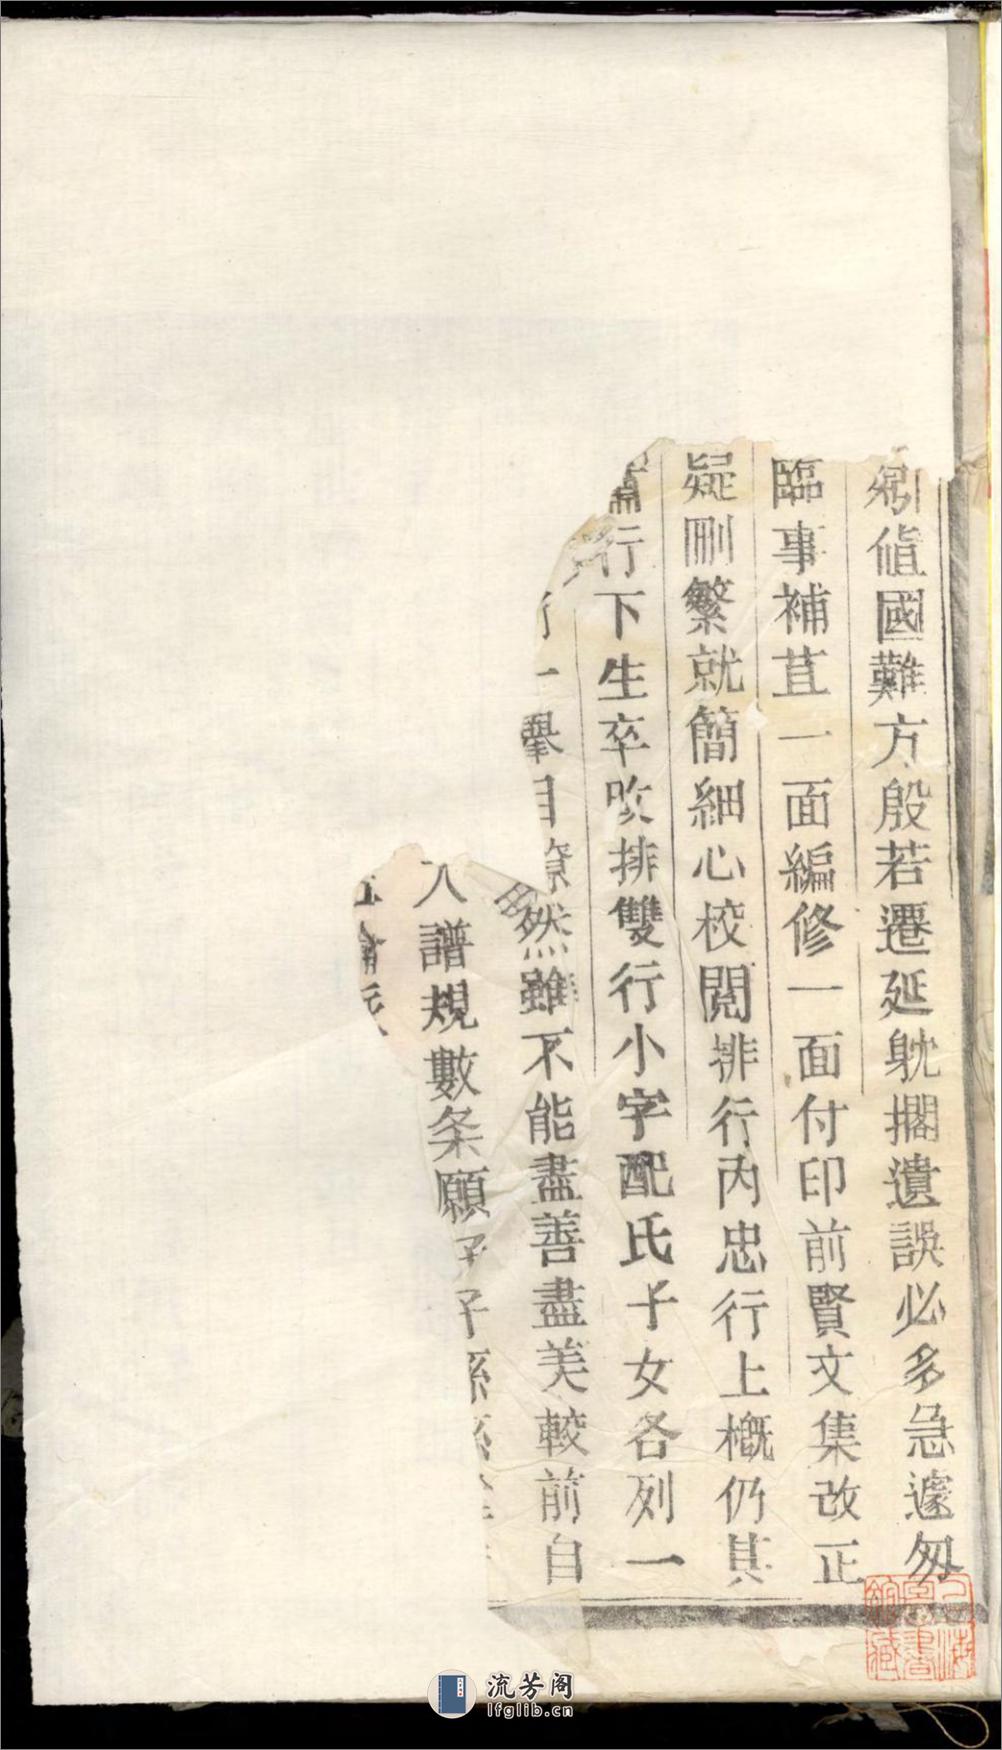 剧值國難方殷若遷延躭擱遺誤必多急遽匆
臨事補苴一面編修一面付印前賢文集改正
疑刪繁就簡細心校閱排行丙忠行上概仍其
行下生卒改排雙行小字配氏子女各列一
一舉目瞭然雖不能盡善盡美較前自
入譜規數条願 子孫
上海圖書館藏
流芳阁
lfglib.cn